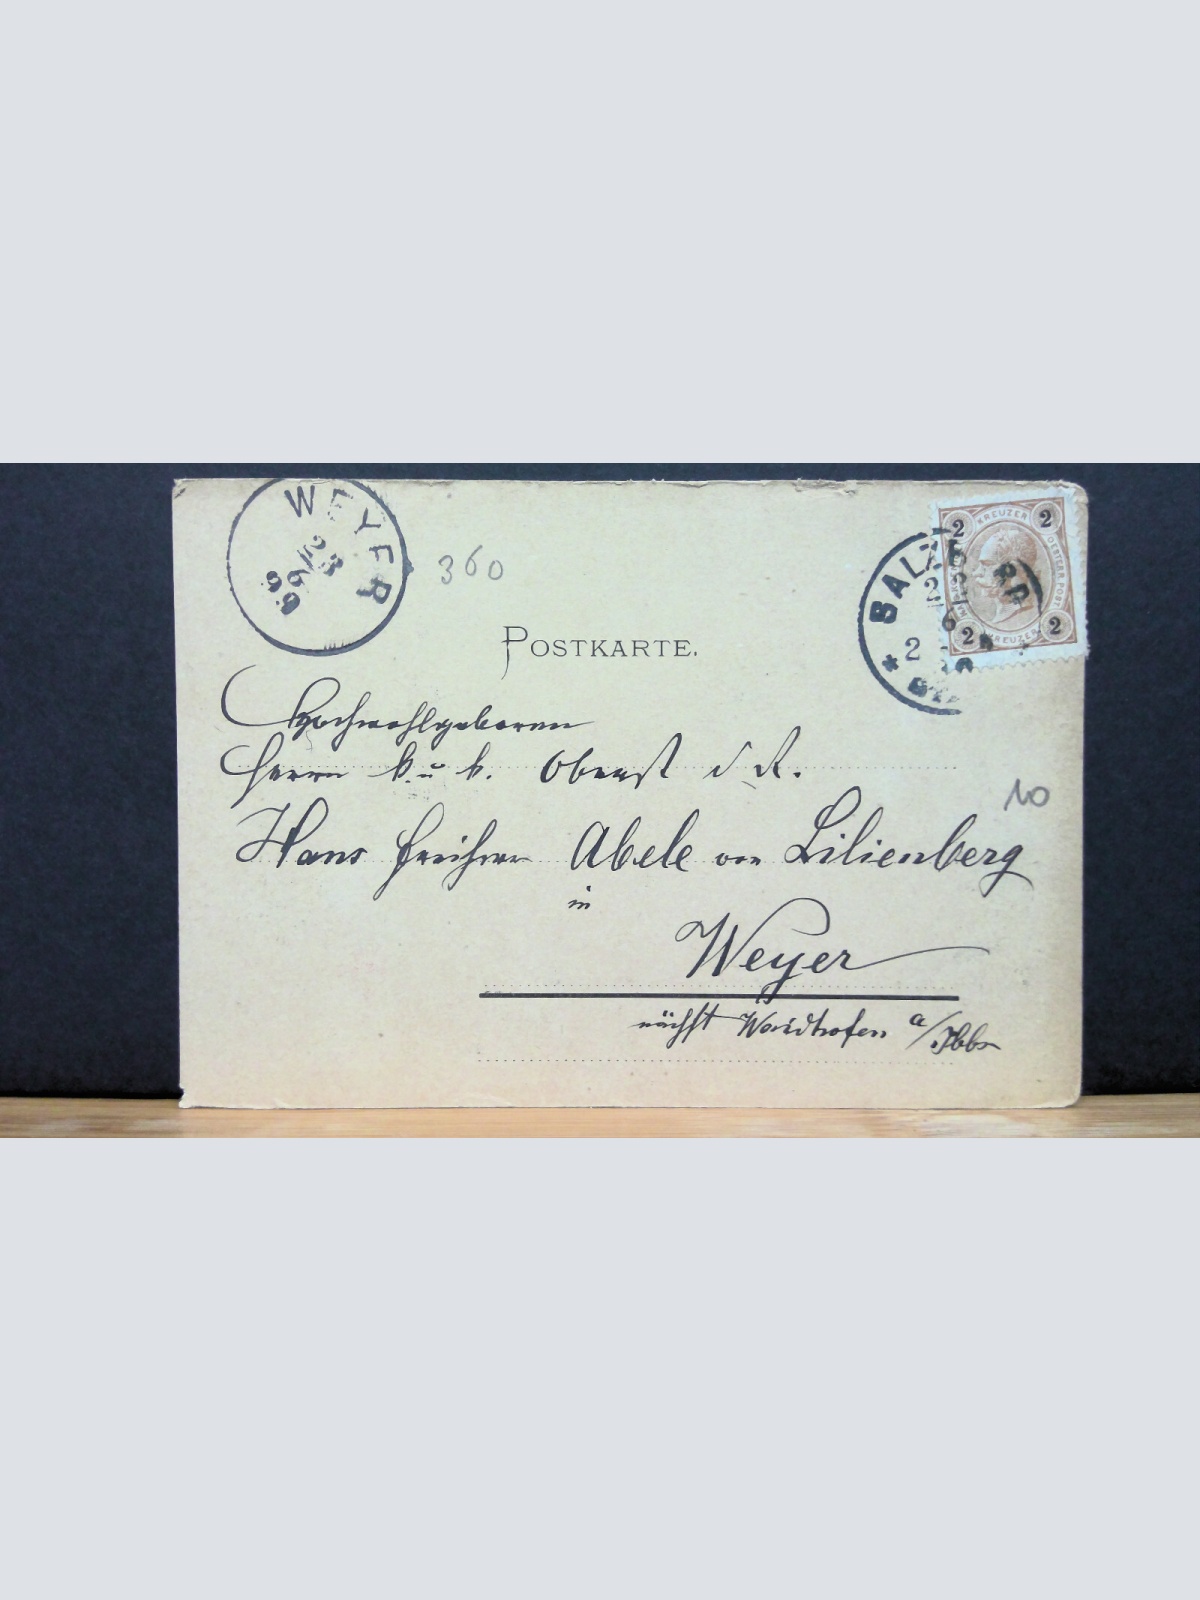 WEYER
360
2 KREUZER 2
2 KREUZER 2
BALZ
POSTKARTE.
Hochwohlgeboren
Herrn k. u. k. Oberst d. R.
10
Hans Freiherr Abele von Lilienberg
in
Weyer
nächst Waidhofen a/Ibbs